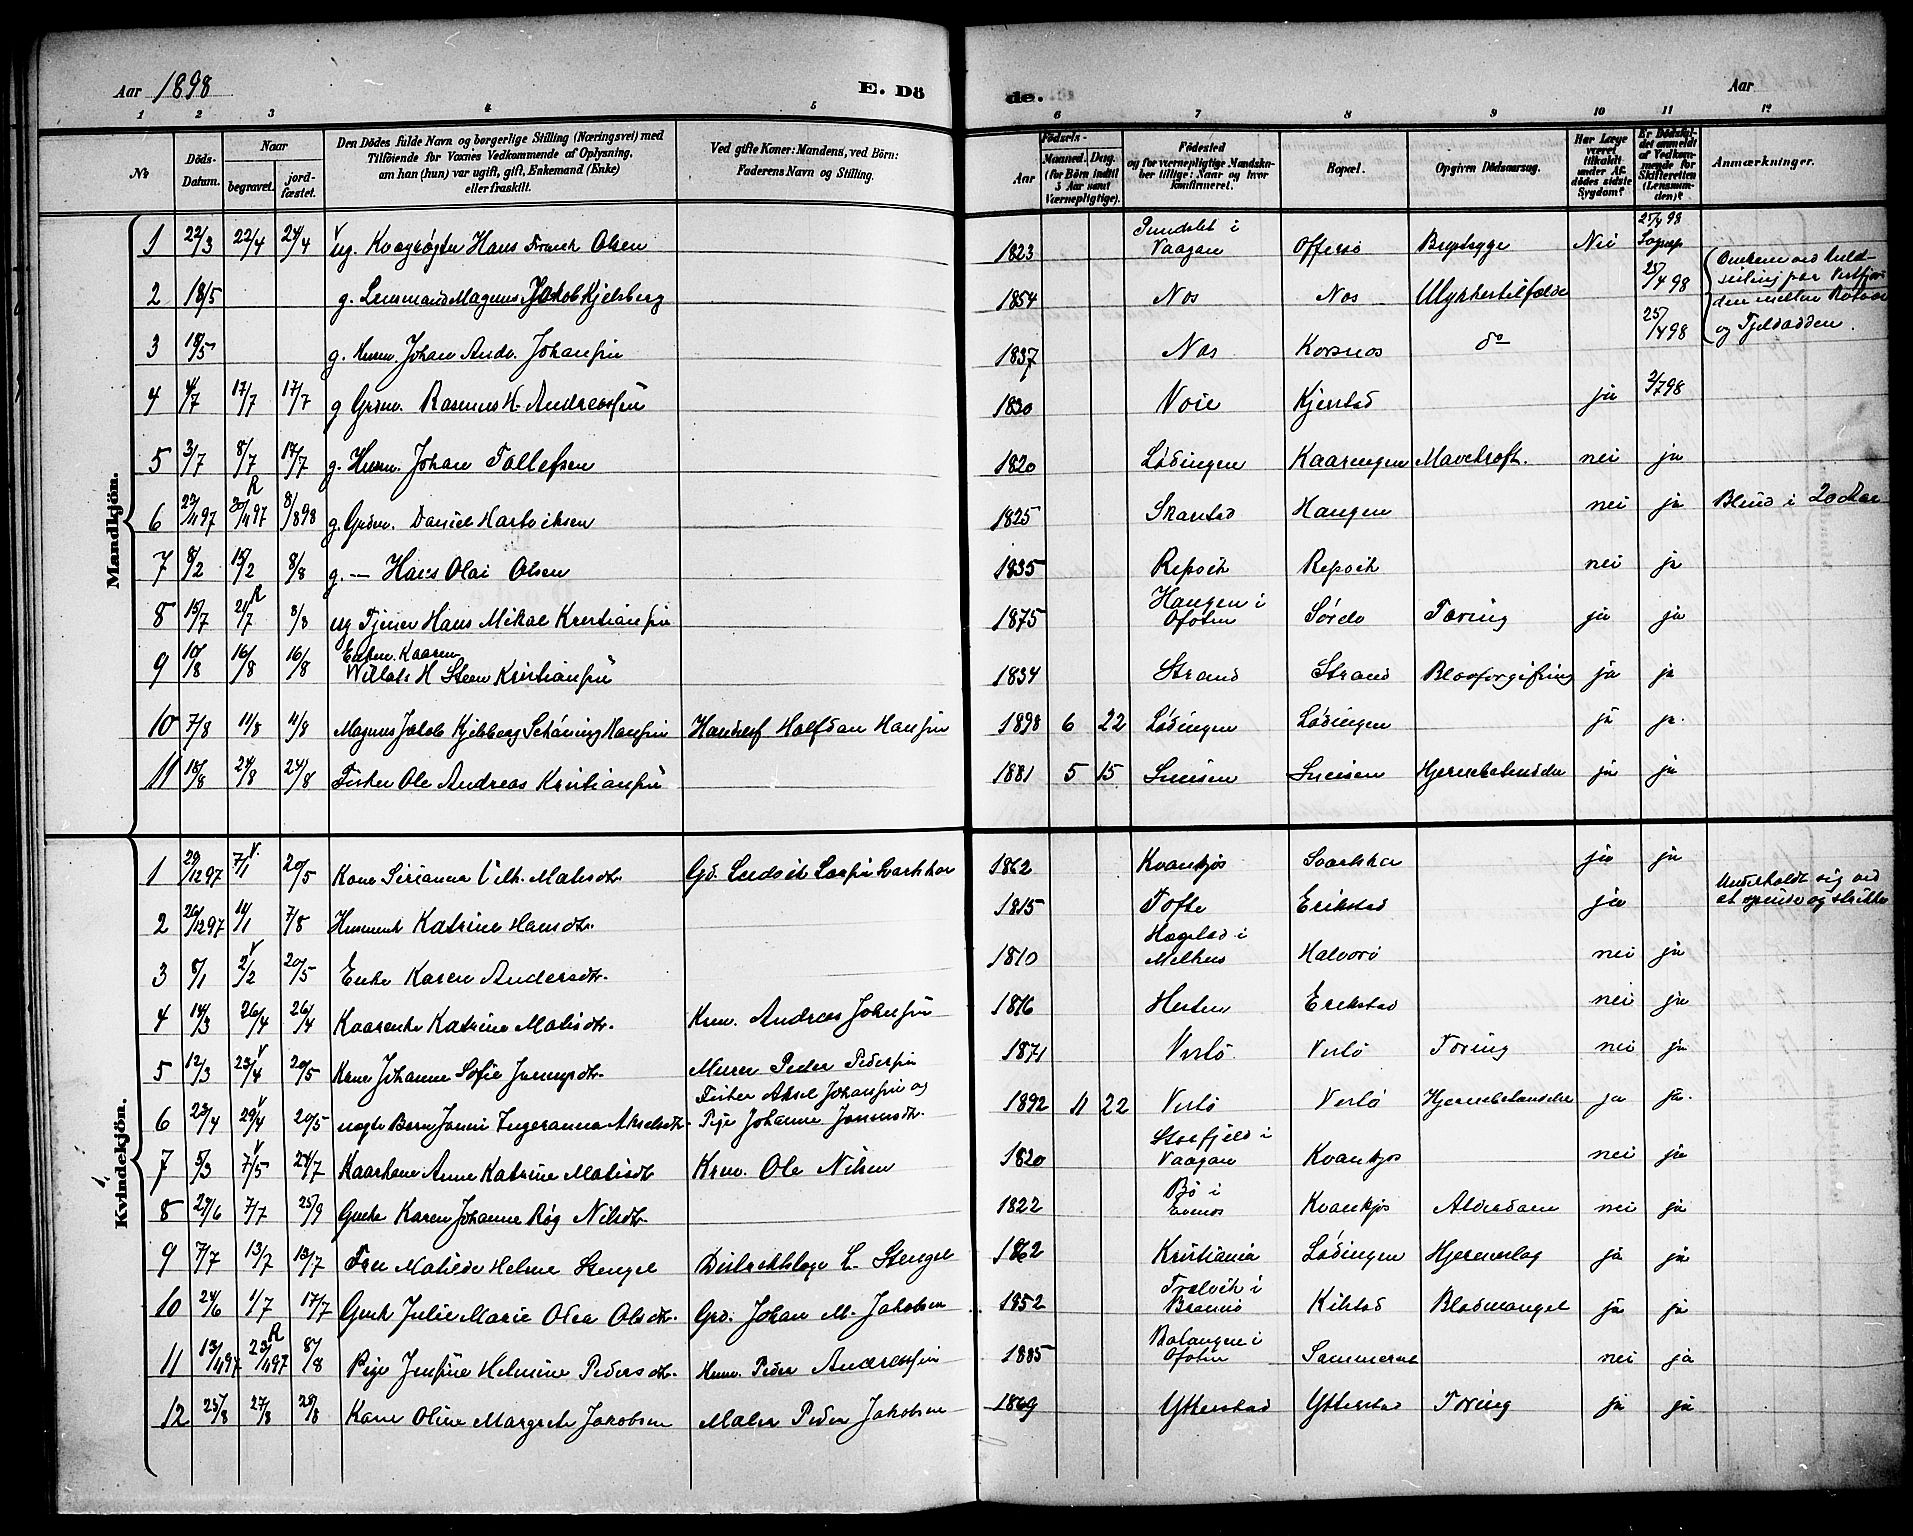 Aar 1898
E. Dö
de.
Aar
1 2 3 4 5 6 7 8 9 10 11 12
No
Döds-Datum.
Naar
begravet.
jord-fæstet.
Den Dödes fulde Navn og borgerlige Stilling (Næringsvei) med
Tilföiende for Voxnes Vedkommende af Oplysning,
om han (hun) var ugift, gift, Enkemand (Enke)
eller fraskilt.
Ved gifte Koner: Mandens, ved Börn:
Faderens Navn og Stilling.
Födsels-
Aar
Maaned. Dag.
(for Börn indtil
5 Aar samt
Værnepligtige).
Födested
og for værnepligtige Mandska-
ber tillige: Naar og hvor
konfirmeret.
Bopæl.
Opgiven Dödsaarsag.
Har Læge
været
tilkaldt
under Af-
dödes sidste
Sygdom?
Er Dödsfal-
det anmeldt
af Vedkom-
mende for
Skifteretten
(Lensman-
den)?
Anmærkninger.
Mandkjön.
1 22/3 22/4 24/4 ug. Hans Olsen 1823 i Vaagan Offersö Brystsyge Nei 25/4 98
2 18/5 g. Lensmand Magnus Jakob Kjelsberg 1854 Nes Nes Ulykkestilfælde 25/4 98
3 18/5 g. Husm. Johan Andr. Johansen 1837 Nes Korsnes do 25/4 98
og Tjeldodden.
4 4/7 17/7 17/7 g Grdm. Rasmus H. Andreassen 1820 Voie Kjerstad ja 2/7 98
5 3/7 8/7 17/7 g. Husm. Johan Tollefsen 1820 Lödingen Kaaringen Mavekræft. nei ja
6 22/4 97 30/4 97 R 8/8 98 g. Grdm. Daniel Hartviksen 1825 Skarstad Haugen nei ja Blind i 20 Aar
7 8/2 15/2 8/8 g. — Hans Olai Olsen 1835 Repvik Repvik nei ja
8 15/7 21/7 R 8/8 ug Tjener Hans Mikal Kristiansen 1875 Haugen i Ofoten Sördal Tæring ja ja
9 10/8 16/8 16/8 H Steen Kristiansen 1834 Strand Strand Blodforgiftning ja ja
10 7/8 11/8 11/8 Magnus Jakob Kjelsberg Schöning Hansen Handelsf Halfdan Hansen 1898 6 22 Lödingen Lödingen ja ja.
11 18/8 24/8 24/8 Fisker Ole Andreas Kristiansen 1881 5 15 Sneisen Sneisen Hjernebetændelse ja ja
Kvindekjön.
1 29/12 97 7/1 V. 20/5 Kone Vilh. Matisdtr. 1862 Kvankjos Svartskar ja ja
2 26/12 97 11/1 7/8 Katrine Hansdtr. 1815 Tofte Erikstad ja Underholdt sig ved
at spinde og strikke
3 8/1 2/2 V 20/5 Enke Karen Andersdtr. 1810 Hagelad i Melhus Halvorö nei ja
4 14/3 26/4 26/4 Kaarenke Katrine Matisdtr. Krm. Andreas Johnsen 1816 Hesten Erikstad nei ja
5 12/3 23/4 V 20/5 Kone Johanne Sofie Jensdtr. Murer Peder Pedersen 1871 Verlö Verlö Tæring nei ja
6 23/4 29/4 V 20/5 uægte Barn Jenni Ingeranna Akselsdtr. Fisker Aksel Johansen og
Pige Johanne Jensdtr. 1892 11 22 Verlö Verlö Hjernebetændelse ja ja.
7 5/3 7/5 V 24/7 Kaarkone Anne Katrine Matisdtr Krm. Ole Nilsen 1820 Storfjeld i Vaagan Kvankjos nei ja
8 29/6 7/7 25/9 Karen Johanne Røg Nilsdtr. 1822 Bö i Evenes Kvankjos Alderdom nei ja
9 7/7 13/7 13/7 Fru Matilde Helene Stengel Distriktslæge L. Stengel 1862 Kristiania Lödingen Hjerneslag ja ja
10 24/6 1/7 17/7 Julie Marie Olea Olsdtr. Grd. Johan M. Jakobsen 1852 i Brönnö Kilstad Blodmangel ja ja
11 13/4 97 23/4 97 R 8/8 Pige Jensine Helmine Pedersdtr. Husm. Peder Andreassen 1885 Balangen i Ofoten nei ja
12 23/8 27/8 28/8 Kone Oline Margrete Jakobsen Maler Peder Jakobsen 1869 Ytterstad Ytterstad Tæring ja ja